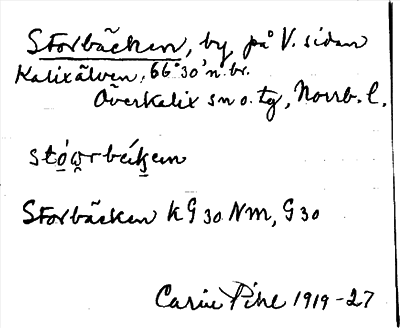 Storbäcken, by, på V. sidan
Kalixälven, 66°30' n. br.
Överkalix sn o. tg, Norrb. l.
Storbäcken KG 30 Nm, G 30
Carin Pihl 1919-27